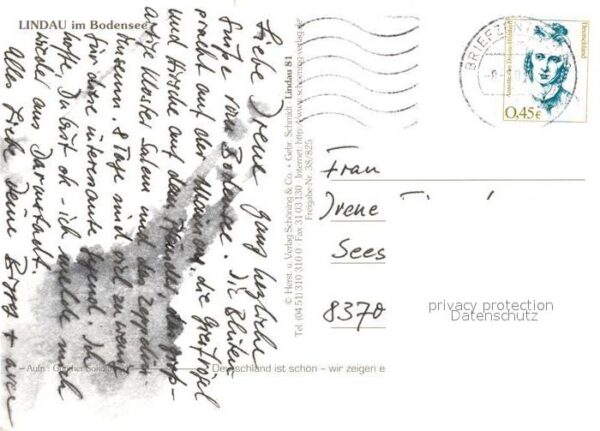 LINDAU im Bodensee
Liebe Irene, ganz herzliche
Grüße vom Bodensee. Die Blüten-
pracht auf der Mainau, die Greifvögel
und Hirsche auf dem Pfänder, das
Kloster Salem und das Zeppelin-
Museum 8 Tage sind viel zu wenig
für diese interessante Gegend. Ich
hoffe, Du bist ok - ich melde mich
wieder aus Darmstadt.
Alles Liebe Deine
© Herst. u. Verlag Schöning & Co. + Gebr. Schmidt · Lindau 81
Tel. (04 51) 310 310 0 · Fax 31 03 130 · Internet: http://www.schoening-verlag.de
Freigabe-Nr. 38/825
Deutschland ist schön – wir zeigen e
– Aufn.:
BRIEFZENTRUM
Deutschland
0,45€
Frau
Irene
Sees
8370
privacy protection
Datenschutz